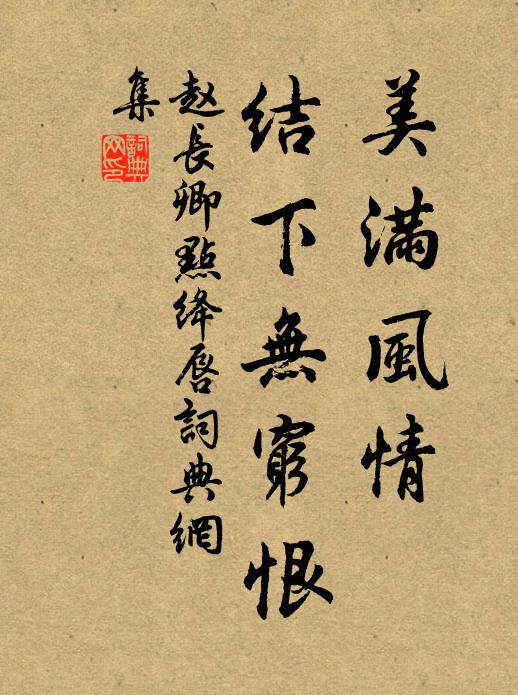 美滿風情
結下無窮恨
赵長卿點绛唇詞典網
集
詞典
网印